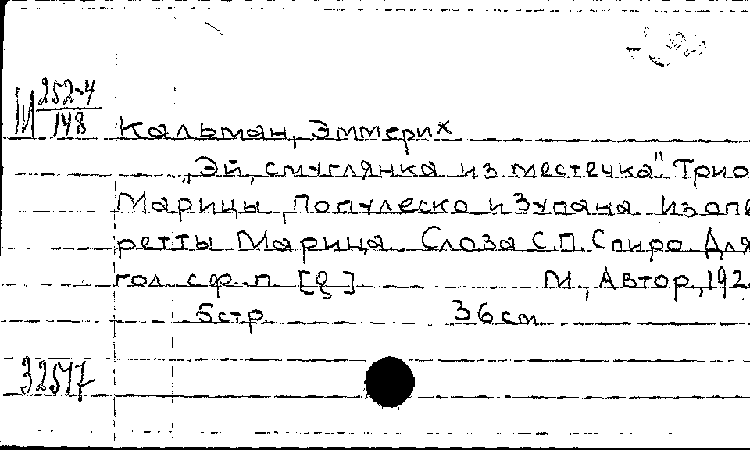 М 252-4
148
Кальман, Эммерих
„Эй, смуглянка из местечка" Трио
Марицы, Популеско и Зупана из опе
ретты Марица. Слова С.П. Спиро. Для
гол. с ф.п. [ ] М., Автор, 192
5 стр. 36 см
32517